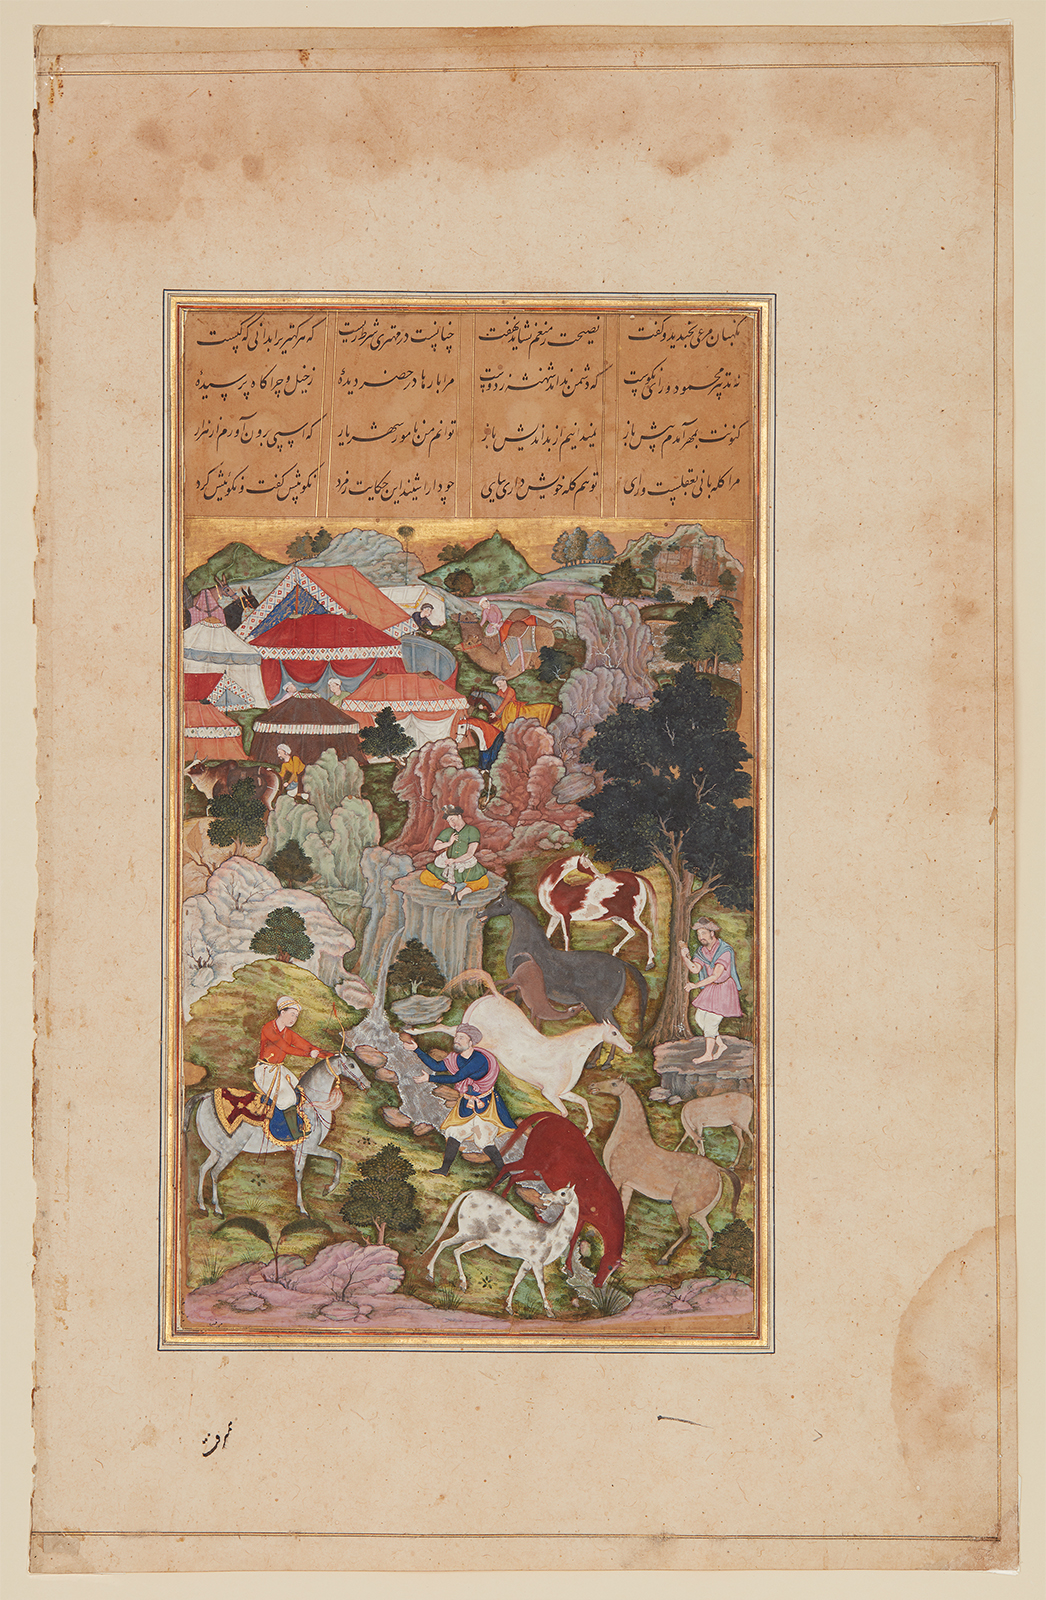 نکهبان مرعی بخندید و کفت نصیحت ز منعم نشاید نهفت چنانست در مهتری شرط زیست که هر کهتریرا بدانی که کیست
نه تدبیر محمود و رای نکوست که دشمن نداند شهنشه ز دوست مرا بارها در حضر دیدهٔ ز خیل و چراکاه پرسیدهٔ
کنونت بمهر آمدم پیش باز نمیدانیم از بداندیش باز توانم من نامور شهریار که اسپی برون آورم از هزار
مرا کله بانی بعقلست و رای تو هم کله خویش داری بپای چو دارا شنید این حکایت ز مرد نکوئیش کفت و نکوئیش کرد